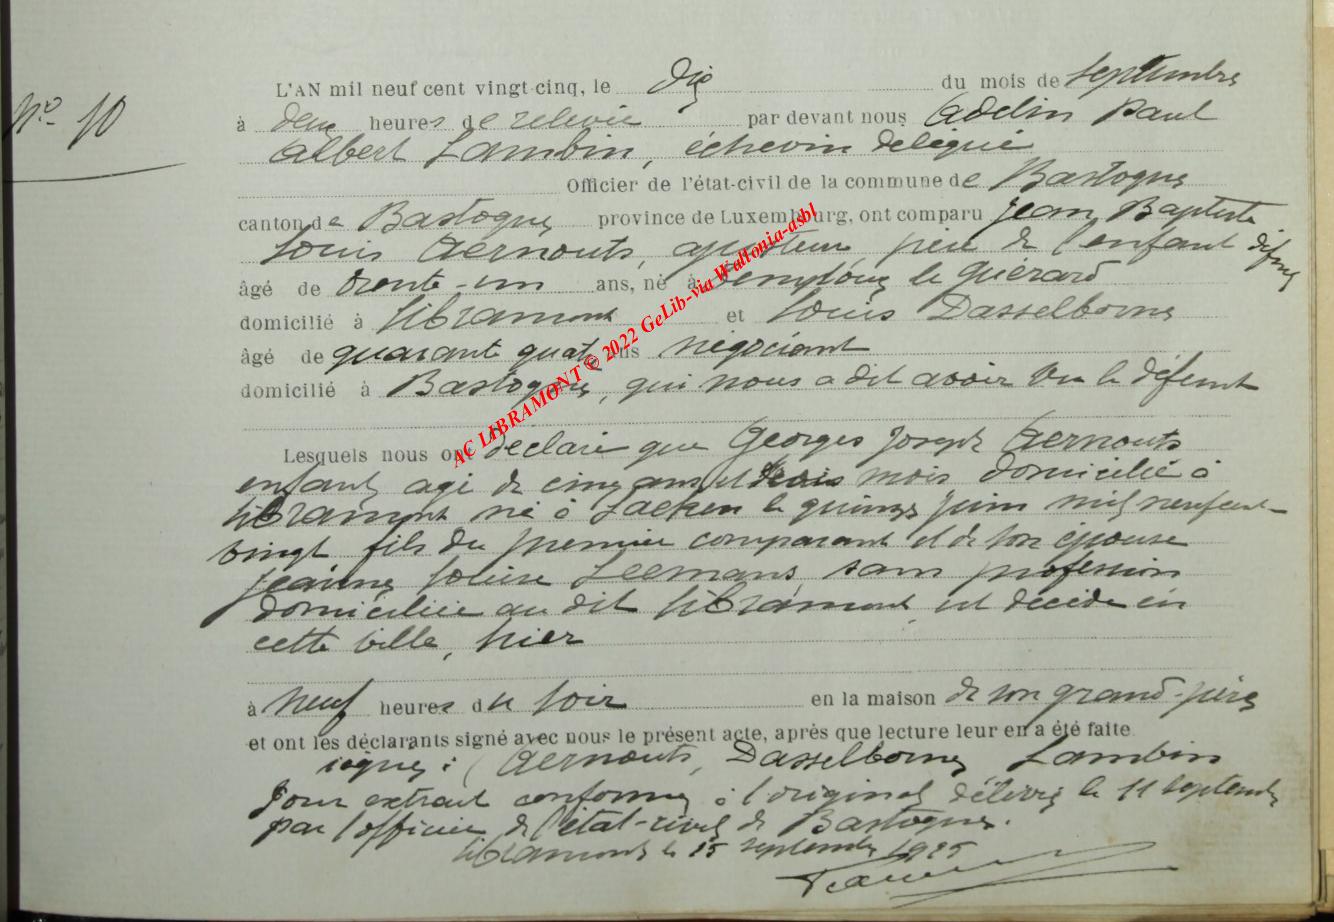 N° 10
L'AN mil neuf cent vingt-cinq, le dix du mois de septembre
à deux heures de relevée par devant nous Adelin Paul
Albert Lambin, échevin délégué
Officier de l'état-civil de la commune de Bastogne
canton de Bastogne province de Luxembourg, ont comparu Jean Baptiste
Louis Aernouts, ajusteur père de l'enfant défunt
âgé de trente-un ans, né à Templeuve le Guérard
domicilié à Libramont et Louis Dasselborne
âgé de quarante quatre ans négociant
domicilié à Bastogne, qui nous a dit avoir vu le défunt
Lesquels nous ont déclaré que Georges Joseph Aernouts
enfant, agé de cinq ans et mois domicilié à
Libramont né à Laeken le quinze juin mil neuf cent-
vingt fils du premier comparant et de son épouse
Jeanne Louise Leemans, sans profession
domiciliée au dit Libramont, est décédé en
cette ville, hier
à neuf heures du soir en la maison de son grand-père
et ont les déclarants signé avec nous le présent acte, après que lecture leur en a été faite.
signé : Aernouts, Dasselborne, Lambin
Pour extrait conforme à l'original délivré le 11 septembre
par l'officier de l'état-civil de Bastogne.
Libramont le 15 septembre 1925
AC LIBRAMONT © 2022 GeLib-via Wallonia-asbl